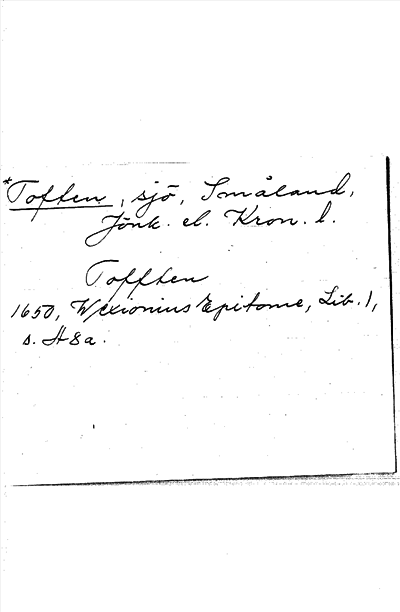 *Toften, sjö, Småland,
Jönk. el. Kron. l.
Tofften
1650, Wexionius Epitome, Lib. 1,
s. H8a.